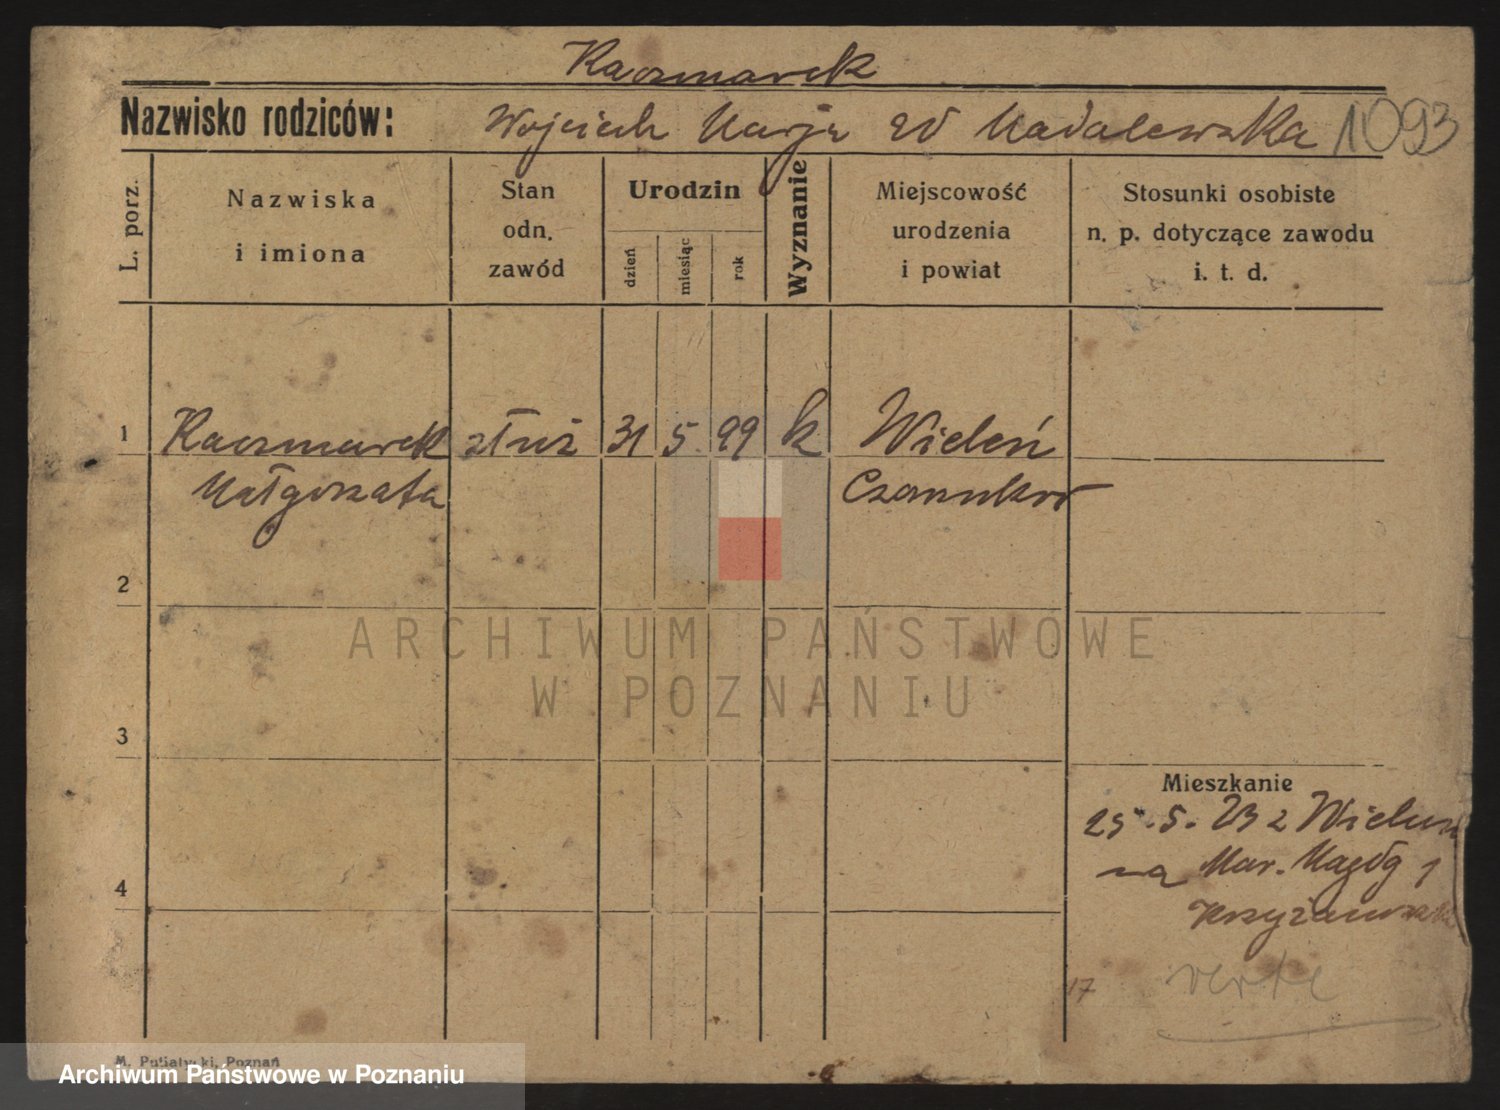 Kaczmarek
Nazwisko rodziców: Wojciech Marja zd Madalewska 1093
L. porz.
Nazwiska
i imiona
Stan
odn.
zawód
Urodzin
dzień
miesiąc
rok
Wyznanie
Miejscowość
urodzenia
i powiat
Stosunki osobiste
n. p. dotyczące zawodu
i. t. d.
1 Kaczmarek służ 31 5. 99 k Wieleń
Małgorzata Czarnków
2
3
Mieszkanie
25.5.23 z Wielun
na Mar. Magdg 1
4
Krzyżanowska
17 verte
M. Putiatycki, Poznań
ARCHIWUM PAŃSTWOWE
W POZNANIU
Archiwum Państwowe w Poznaniu